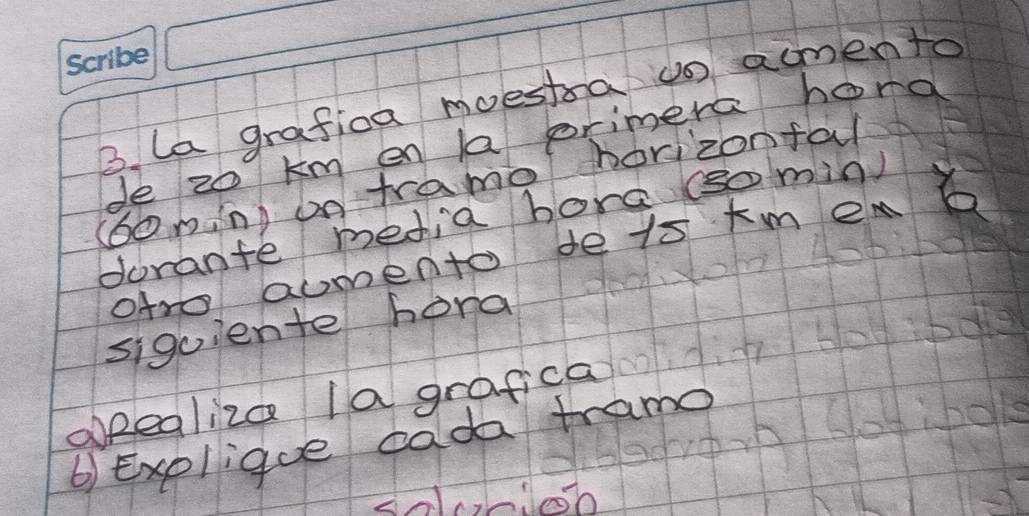 Scribe
3. La grafica moestra un aumento
de 20 km en la primera hora
(60 min) un tramo horizontal
dorante media hora (30 min) y
otro aumento de 15 km en la
siguiente hora
a) Realiza la grafica
b) Explique cada tramo
solucion